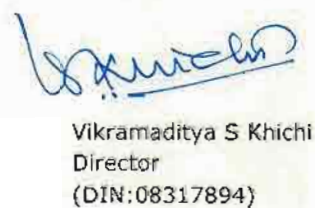 Vikramaditya S Khichi
Director
(DIN:08317894)